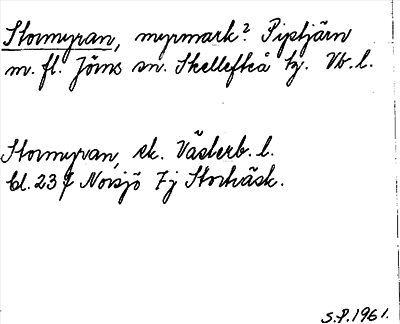 Stormyran, myrmark? Pipstjärn
m. fl. Jörns sn. Skellefteå tg. Vb. l.
Stormyran, ek. Västerb. l.
bl. 23 J Norsjö 7j Storträsk.
S.P. 1961.